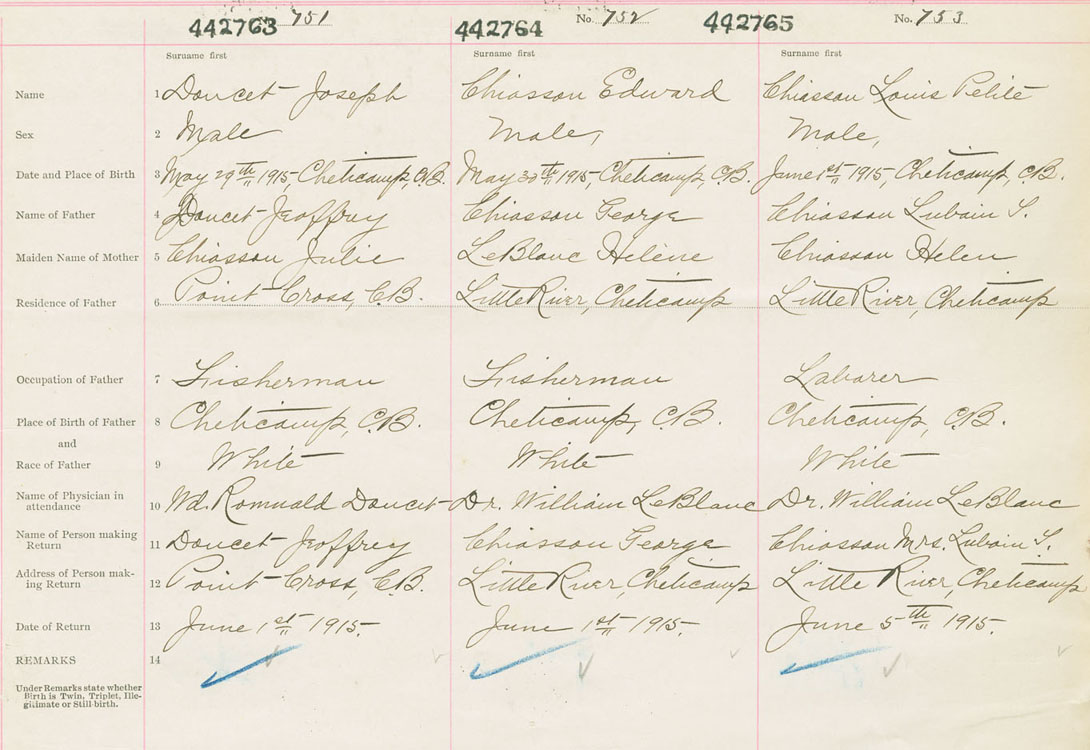 442763 751 442764 No. 752 442765 No. 753
Surname first Surname first Surname first
Name 1 Doucet Joseph Chiasson Edward Chiasson Louis Petite
Sex 2 Male Male, Male,
Date and Place of Birth 3 May 29th 1915, Cheticamp, C.B. May 30th 1915, Cheticamp, C.B. June 1st 1915, Cheticamp, C.B.
Name of Father 4 Doucet Jeoffrey Chiasson George Chiasson Lubain S.
Maiden Name of Mother 5 Chiasson Julie LeBlanc Helène Chiasson Helen
Residence of Father 6 Point Cross, C.B. Little River, Cheticamp Little River, Cheticamp
Occupation of Father 7 Fisherman Fisherman Laborer
Place of Birth of Father 8 Cheticamp, C.B. Cheticamp, C.B. Cheticamp, C.B.
and
Race of Father 9 White White White
Name of Physician in
attendance 10 Wd. Romuald Doucet Dr. William LeBlanc Dr. William LeBlanc
Name of Person making
Return 11 Doucet Jeoffrey Chiasson George Chiasson Mrs. Lubain S.
Address of Person mak-
ing Return 12 Point Cross, C.B. Little River, Cheticamp Little River, Cheticamp
Date of Return 13 June 1st 1915. June 1st 1915. June 5th 1915.
REMARKS 14
Under Remarks state whether
Birth is Twin, Triplet, Ille-
gitimate or Still-birth.